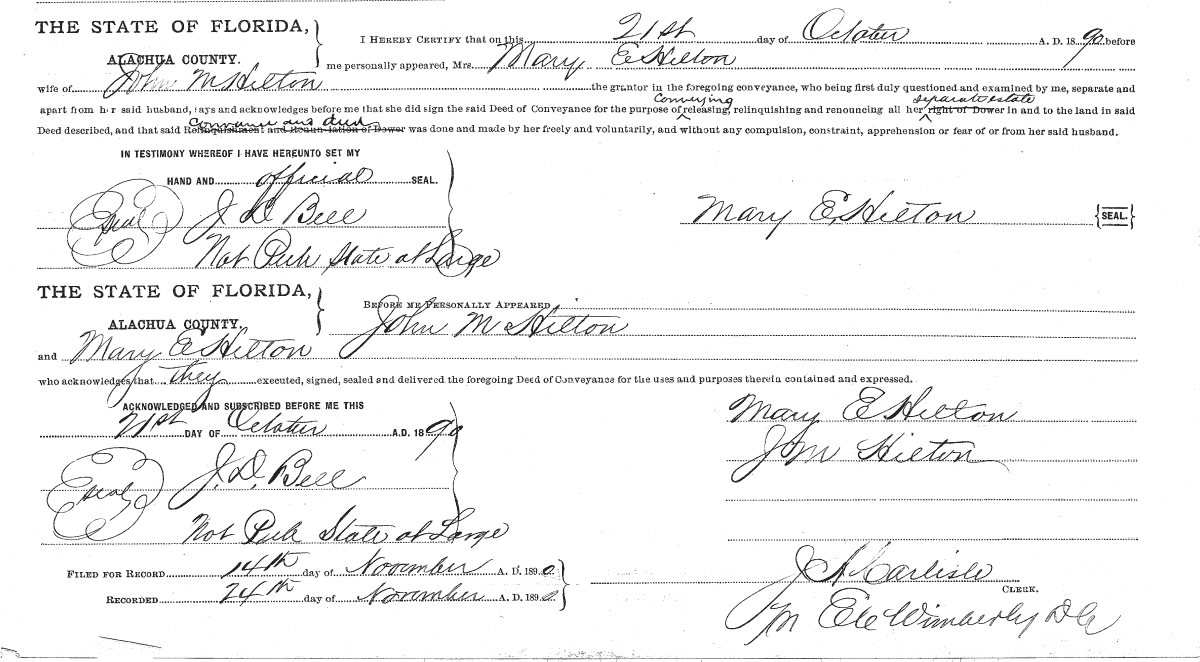 THE STATE OF FLORIDA,
ALACHUA COUNTY.
I HEREBY CERTIFY that on this 21st day of October A. D. 1890 before
me personally appeared, Mrs. Mary E Hilton
wife of John M Hilton the grantor in the foregoing conveyance, who being first duly questioned and examined by me, separate and
conveying separate estate
apart from her said husband, says and acknowledges before me that she did sign the said Deed of Conveyance for the purpose of releasing, relinquishing and renouncing all her right of Dower in and to the land in said
Conveyance and deed
Deed described, and that said Relinquishment and Renunciation of Dower was done and made by her freely and voluntarily, and without any compulsion, constraint, apprehension or fear of or from her said husband.
IN TESTIMONY WHEREOF I HAVE HEREUNTO SET MY
HAND AND official SEAL.
seal J. D. Bell
Mary E. Hilton {SEAL.}
Not Pub State at Large
THE STATE OF FLORIDA,
ALACHUA COUNTY.
BEFORE ME PERSONALLY APPEARED
John M Hilton
and Mary E Hilton
who acknowledges that they executed, signed, sealed and delivered the foregoing Deed of Conveyance for the uses and purposes therein contained and expressed.
ACKNOWLEDGED AND SUBSCRIBED BEFORE ME THIS
21st DAY OF October A.D. 1890
Mary E Hilton
J M Hilton
seal J. D. Bell
Not Pub State at Large
FILED FOR RECORD 14th day of November A. D. 1890
RECORDED 24th day of November A. D. 1890
J A Carlisle
CLERK.
Wimberly D C